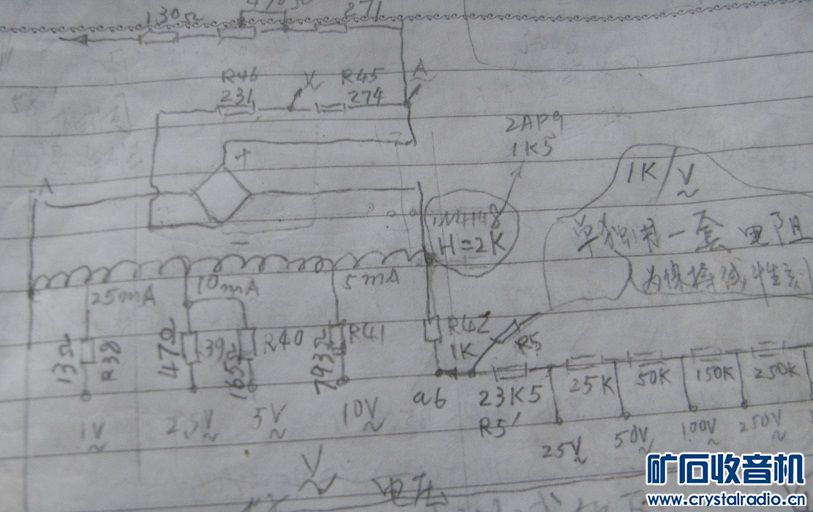 130Ω 271
R46 X R45 A
231 274
2AP9
1K5
+
1K/V
A
1N4148
H=2K
单独用一套电阻
为保持线性刻
−
25mA 10mA 5mA
13Ω R38 47Ω 39 165Ω R40 793Ω R41 R42 1K R5
23K5 25K 50K 150K 250K
ab R5'
1V 2.5V 5V 10V
25V 50V 100V 250V
V 电压
矿石收音机
www.crystalradio.cn